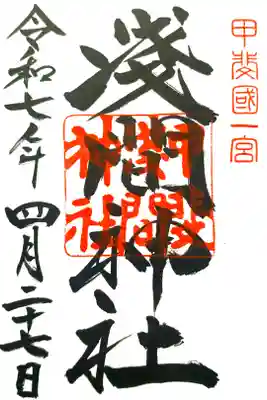 甲斐國一宮
淺間神社
淺間
神社
令和七年四月二十七日